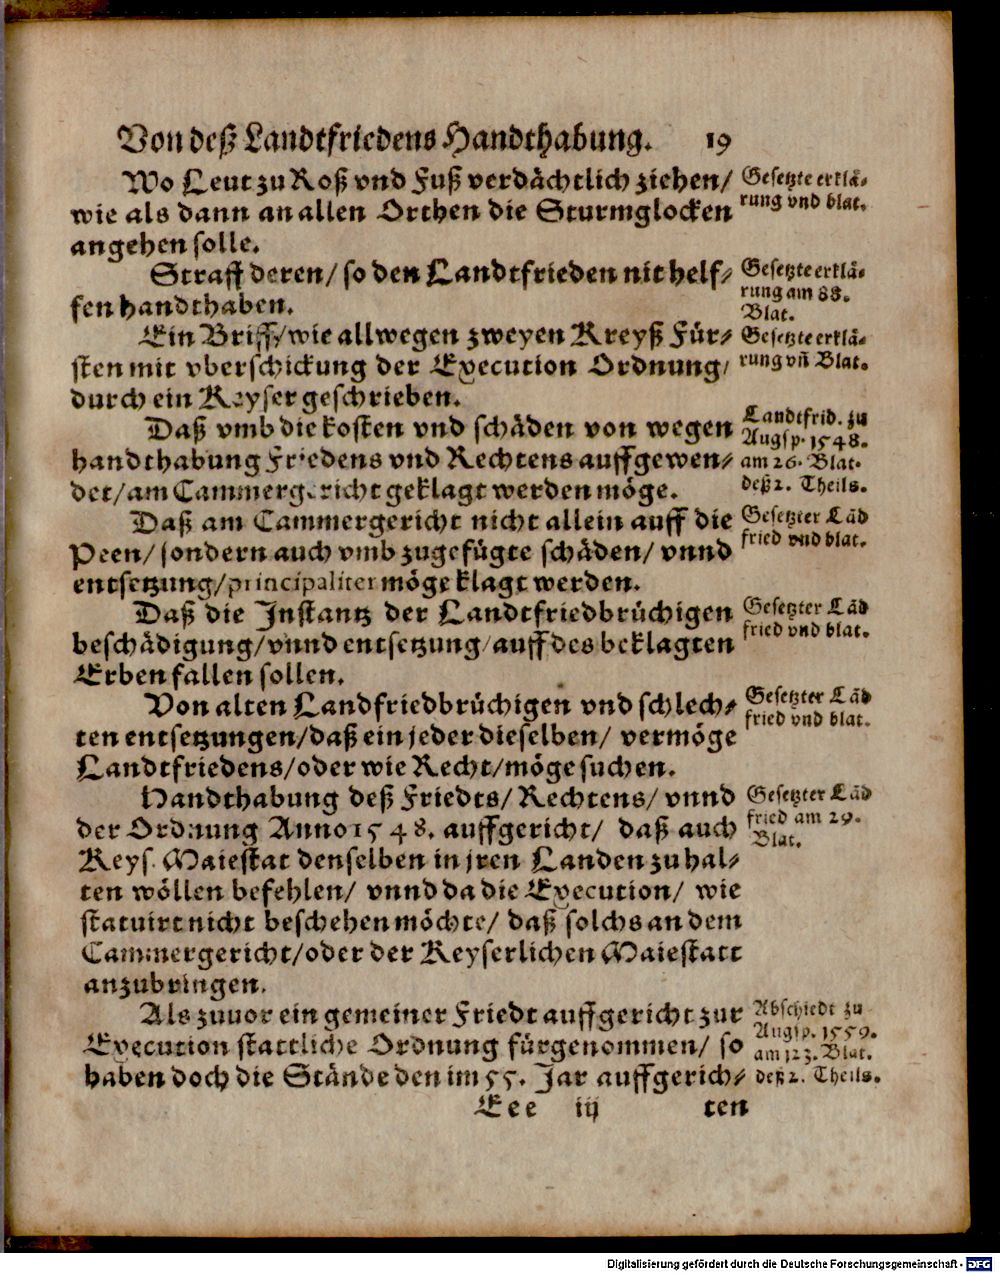 Von deß Landtfriedens Handthabung. 19
Wo Leut zu Roß vnd Fuß verdächtlich ziehen/
wie als dann an allen Orthen die Sturmglocken
angehen solle.
Gesetzte erklä-
rung vnd blat.
Straff deren/ so den Landtfrieden nit helf-
fen handthaben.
Gesetzte erklä-
rung am 88.
Blat.
Ein Briff/ wie allwegen zweyen Kreyß Für-
sten mit vberschickung der Execution Ordnung/
durch ein Keyser geschrieben.
Gesetzte erklä-
rung vñ Blat.
Daß vmb die kosten vnd schäden von wegen
handthabung Friedens vnd Rechtens auffgewen-
det/ am Cammergericht geklagt werden möge.
Landtfrid. zu
Augsp. 1548.
am 26. Blat.
deß 2. Theils.
Daß am Cammergericht nicht allein auff die
Peen/ sondern auch vmb zugefügte schäden/ vnnd
entsetzung/ principaliter möge klagt werden.
Gesetzter Läd
fried vnd blat.
Daß die Instantz der Landtfriedbrüchigen
beschädigung/ vnnd entsetzung/ auff des beklagten
Erben fallen sollen.
Gesetzter Läd
fried vnd blat.
Von alten Landfriedbrüchigen vnd schlech-
ten entsetzungen/ daß ein jeder dieselben/ vermöge
Landtfriedens/ oder wie Recht/ möge suchen.
Gesetzter Läd
fried vnd blat.
Handthabung deß Friedts/ Rechtens/ vnnd
der Ordnung Anno 1548. auffgericht/ daß auch
Keys. Maiestat denselben in jren Landen zu hal-
ten wöllen befehlen/ vnnd da die Execution/ wie
statuirt nicht beschehen möchte/ daß solchs an dem
Cammergericht/ oder der Keyserlichen Maiestatt
anzubringen.
Gesetzter Läd
fried am 29.
Blat.
Als zuuor ein gemeiner Friedt auffgericht zur
Execution stattliche Ordnung fürgenommen/ so
haben doch die Stände den im 55. Jar auffgerich-
Abschiedt zu
Augsp. 1559.
am 123. Blat.
deß 2. Theils.
Eee iij ten
Digitalisierung gefördert durch die Deutsche Forschungsgemeinschaft - DFG